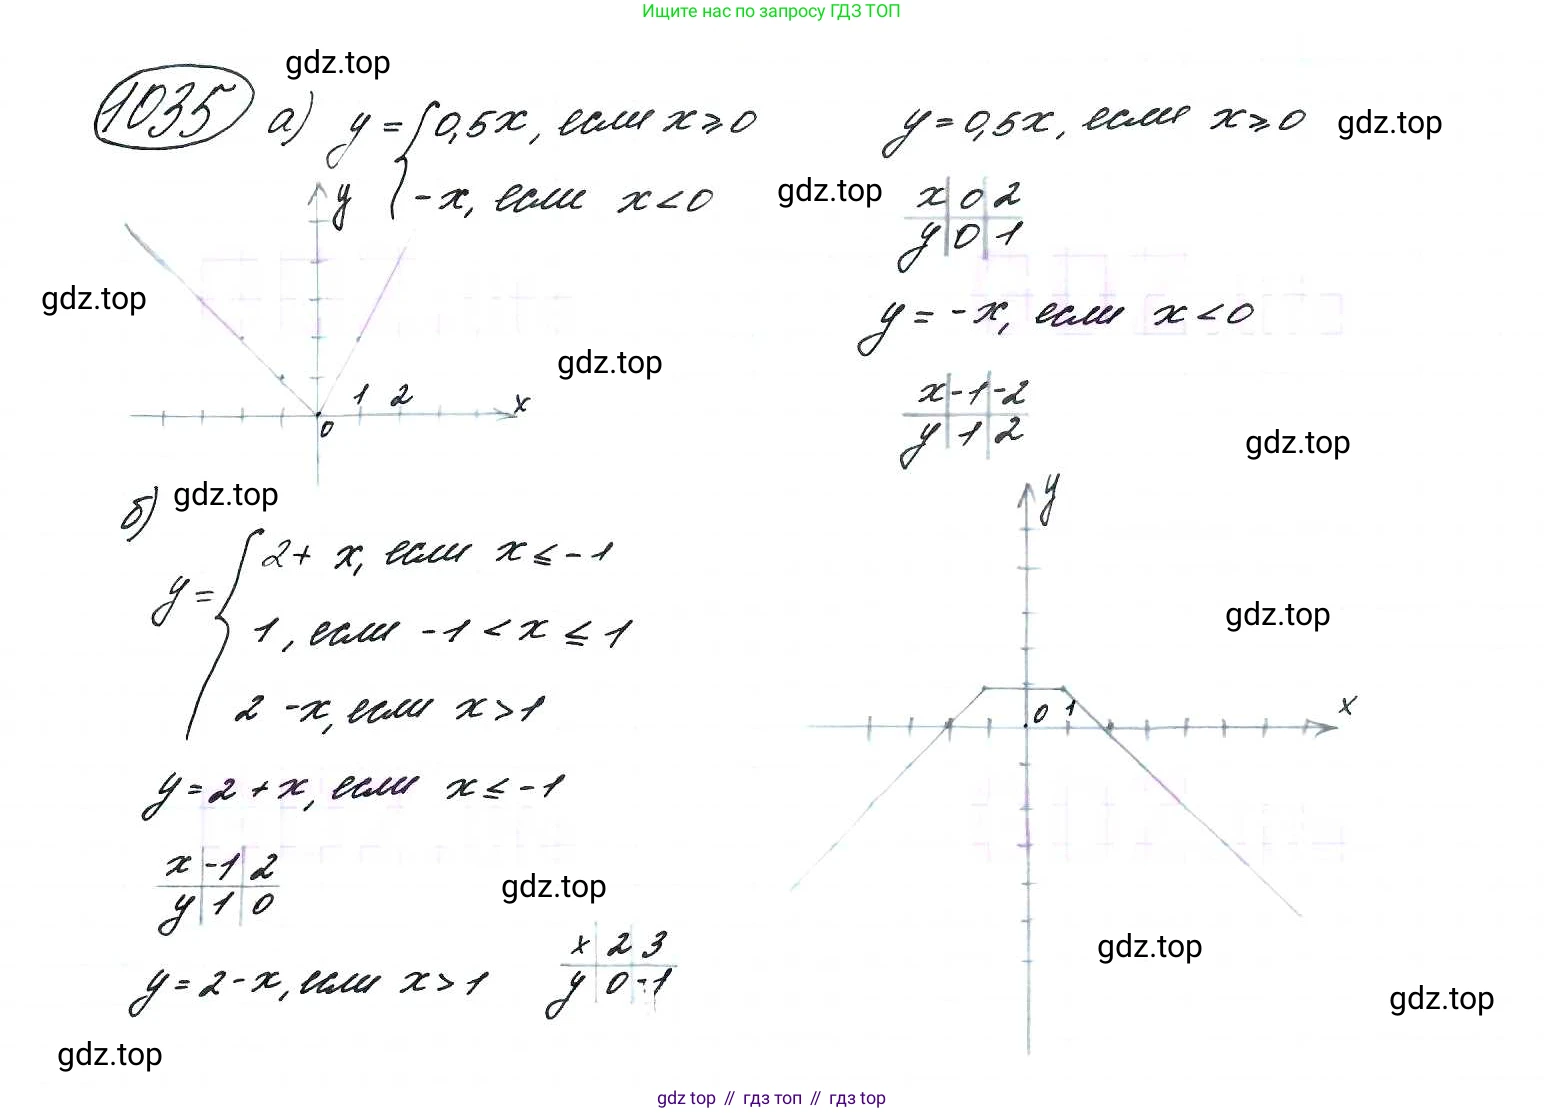 Ищите нас по запросу ГДЗ ТОП
gdz.top
1035 а) y = { 0,5x, если x ⩾ 0
-x, если x < 0
y = 0,5x, если x ⩾ 0
gdz.top
gdz.top
x 0 2
y 0 1
y = -x, если x < 0
x -1 -2
y 1 2
gdz.top
y
gdz.top
gdz.top
1 2
x
0
б) gdz.top
y = { 2 + x, если x ≤ -1
1, если -1 < x ≤ 1
2 - x, если x > 1
y
gdz.top
0 1
x
y = 2 + x, если x ≤ -1
x -1 2
y 1 0
gdz.top
y = 2 - x, если x > 1
x 2 3
y 0 -1
gdz.top
gdz.top
gdz.top
gdz top // гдз топ // гдз top